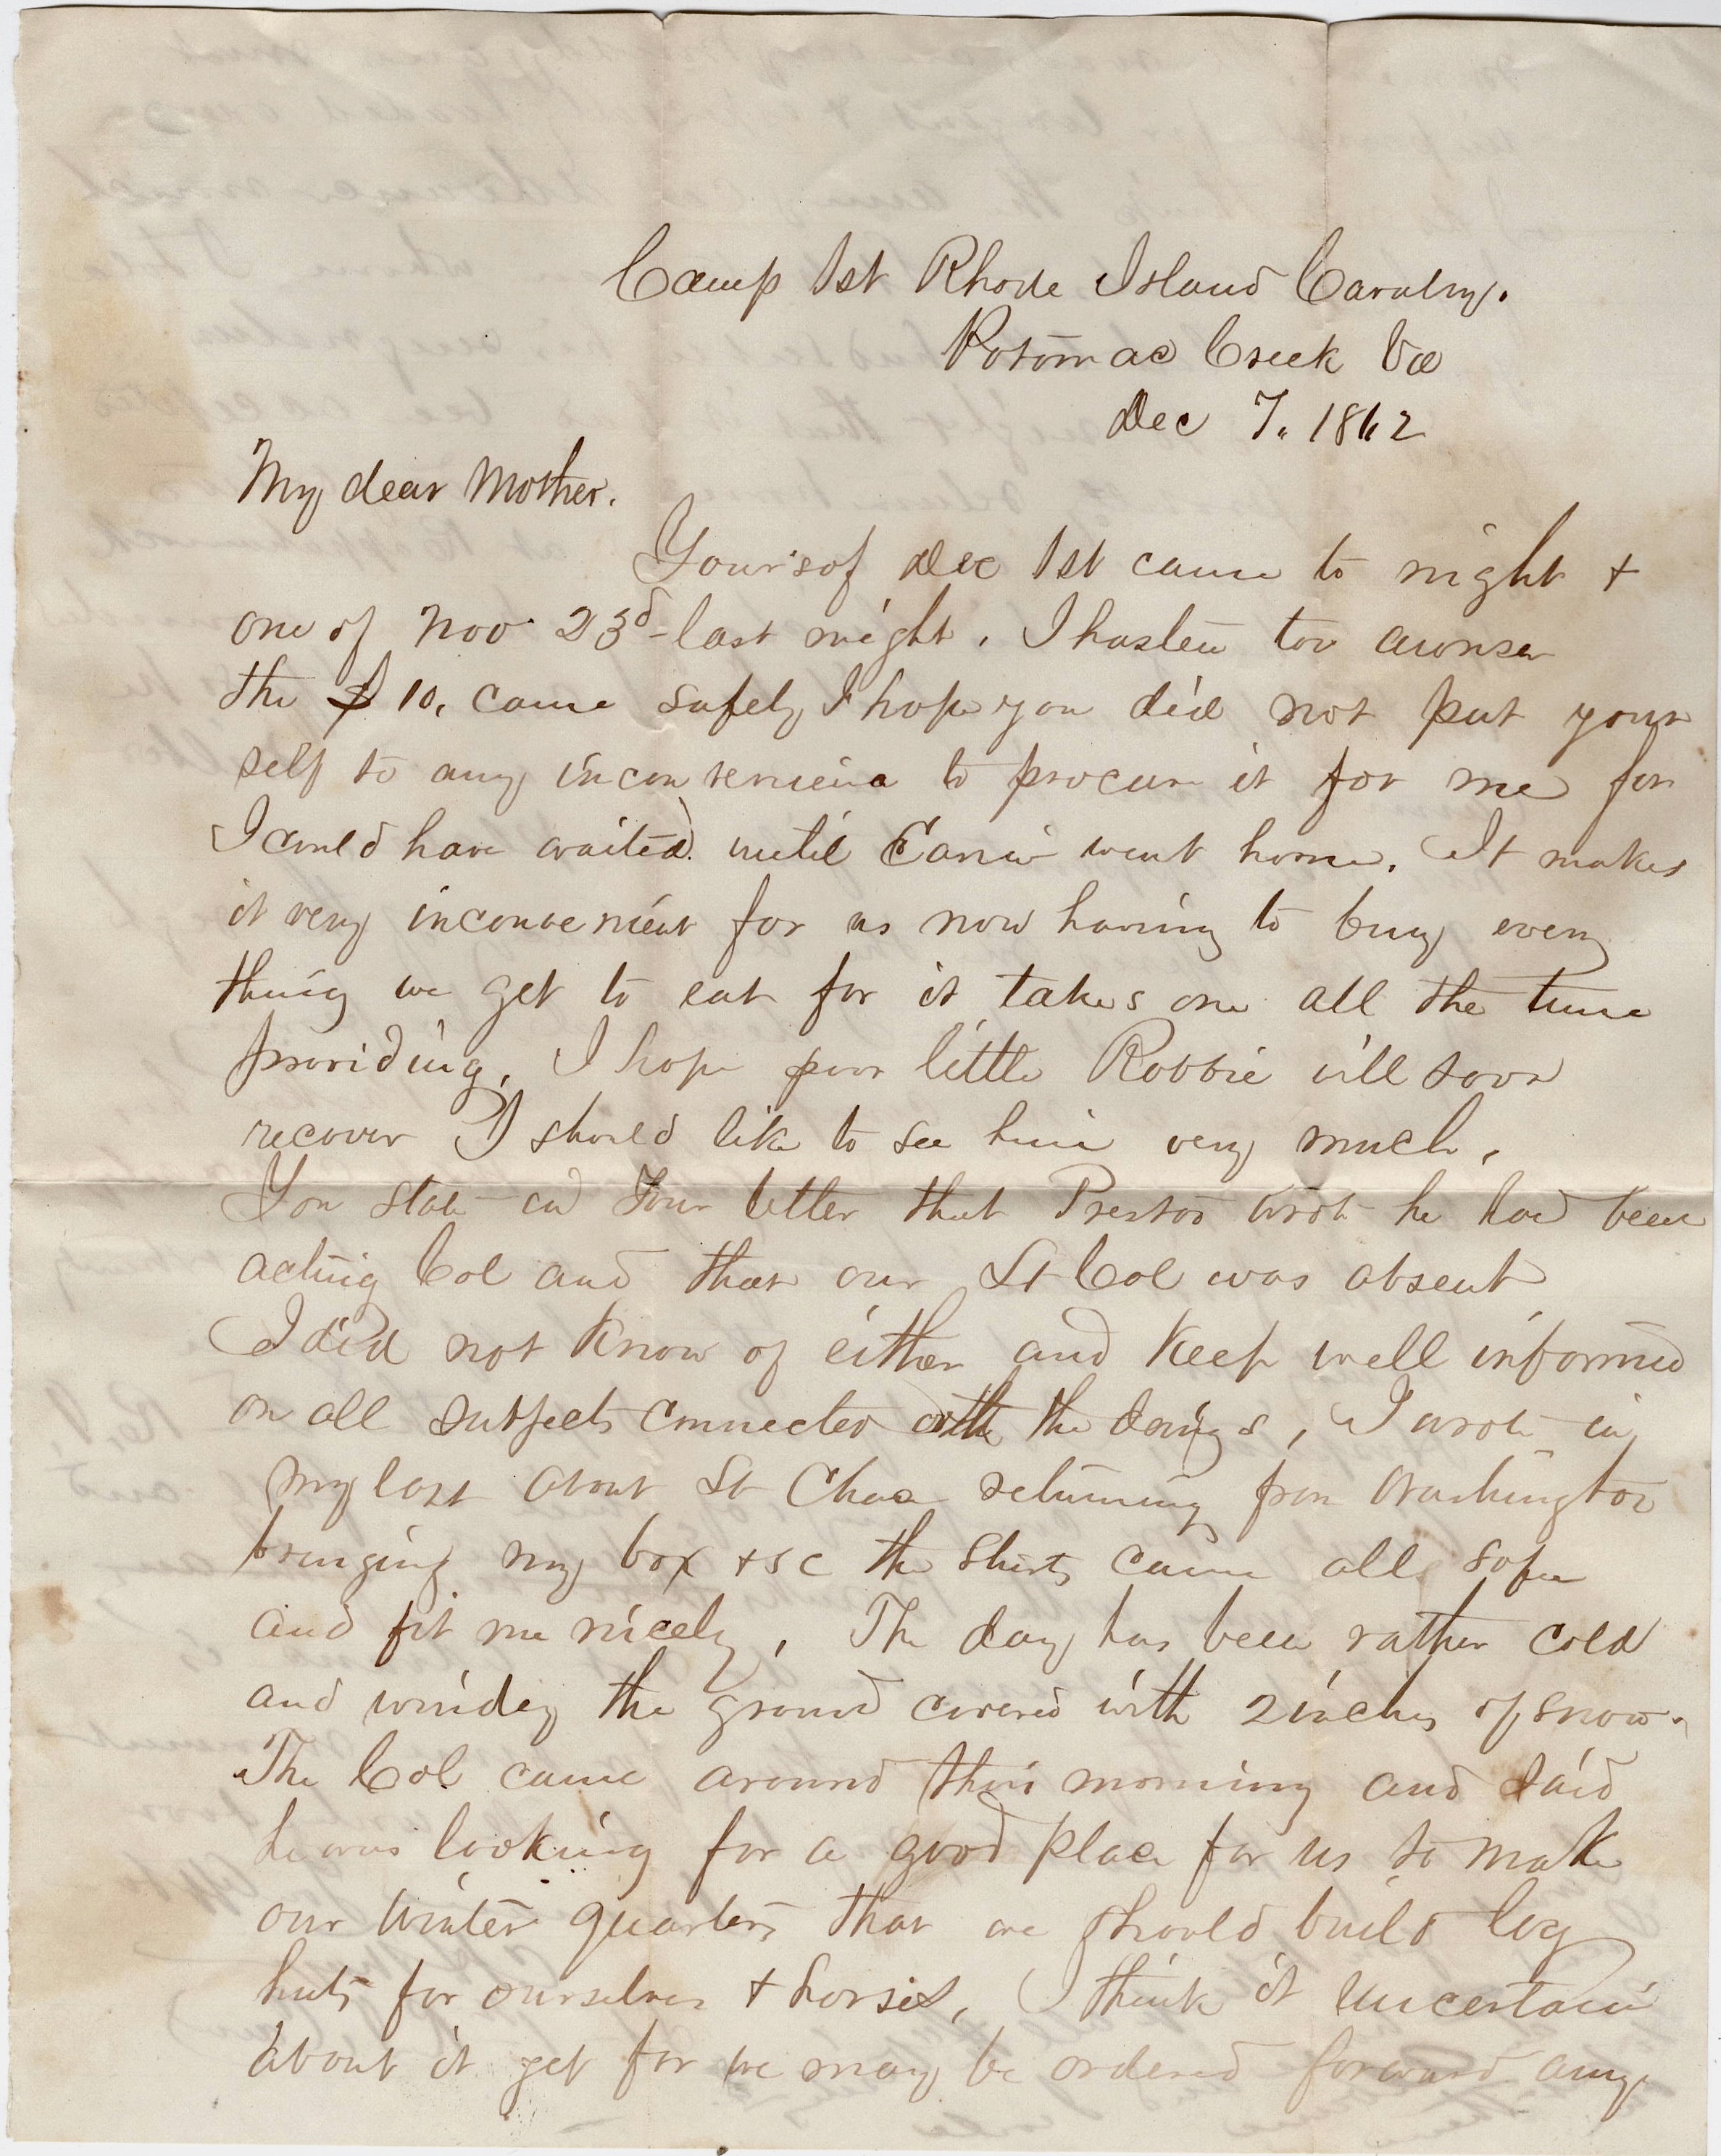 Camp 1st Rhode Island Cavalry.
Potomac Creek Va
Dec 7. 1862
My dear Mother.
Yours of Dec 1st came to night +
one of Nov 23d last night. I hasten too
the $10. came safely I hope you did not put your
self to any inconvenience to procure it for me for
I could have waited until went home. It makes
it very inconvenient for us now having to buy every
thing we get to eat for it takes one all the time
providing. I hope poor little Robbie will soon
recover I should like to see him very much.
You state in Your letter that Preston wrote he had been
acting Col and that our Lt Col was absent
I did not know of either and keep well informed
on all subjects connected with the doings, I wrote in
my last about Lt Chase returning from Washington
bringing my box +c the shirts came all safe
and fit me nicely, The day has been rather cold
and windey the ground covered with 2 inches of snow.
The Col came around this morning and said
he was looking for a good place for us to make
our winter quarters that we should build log
huts for ourselves + horses, I think it uncertain
about it yet for we may be ordered forward any